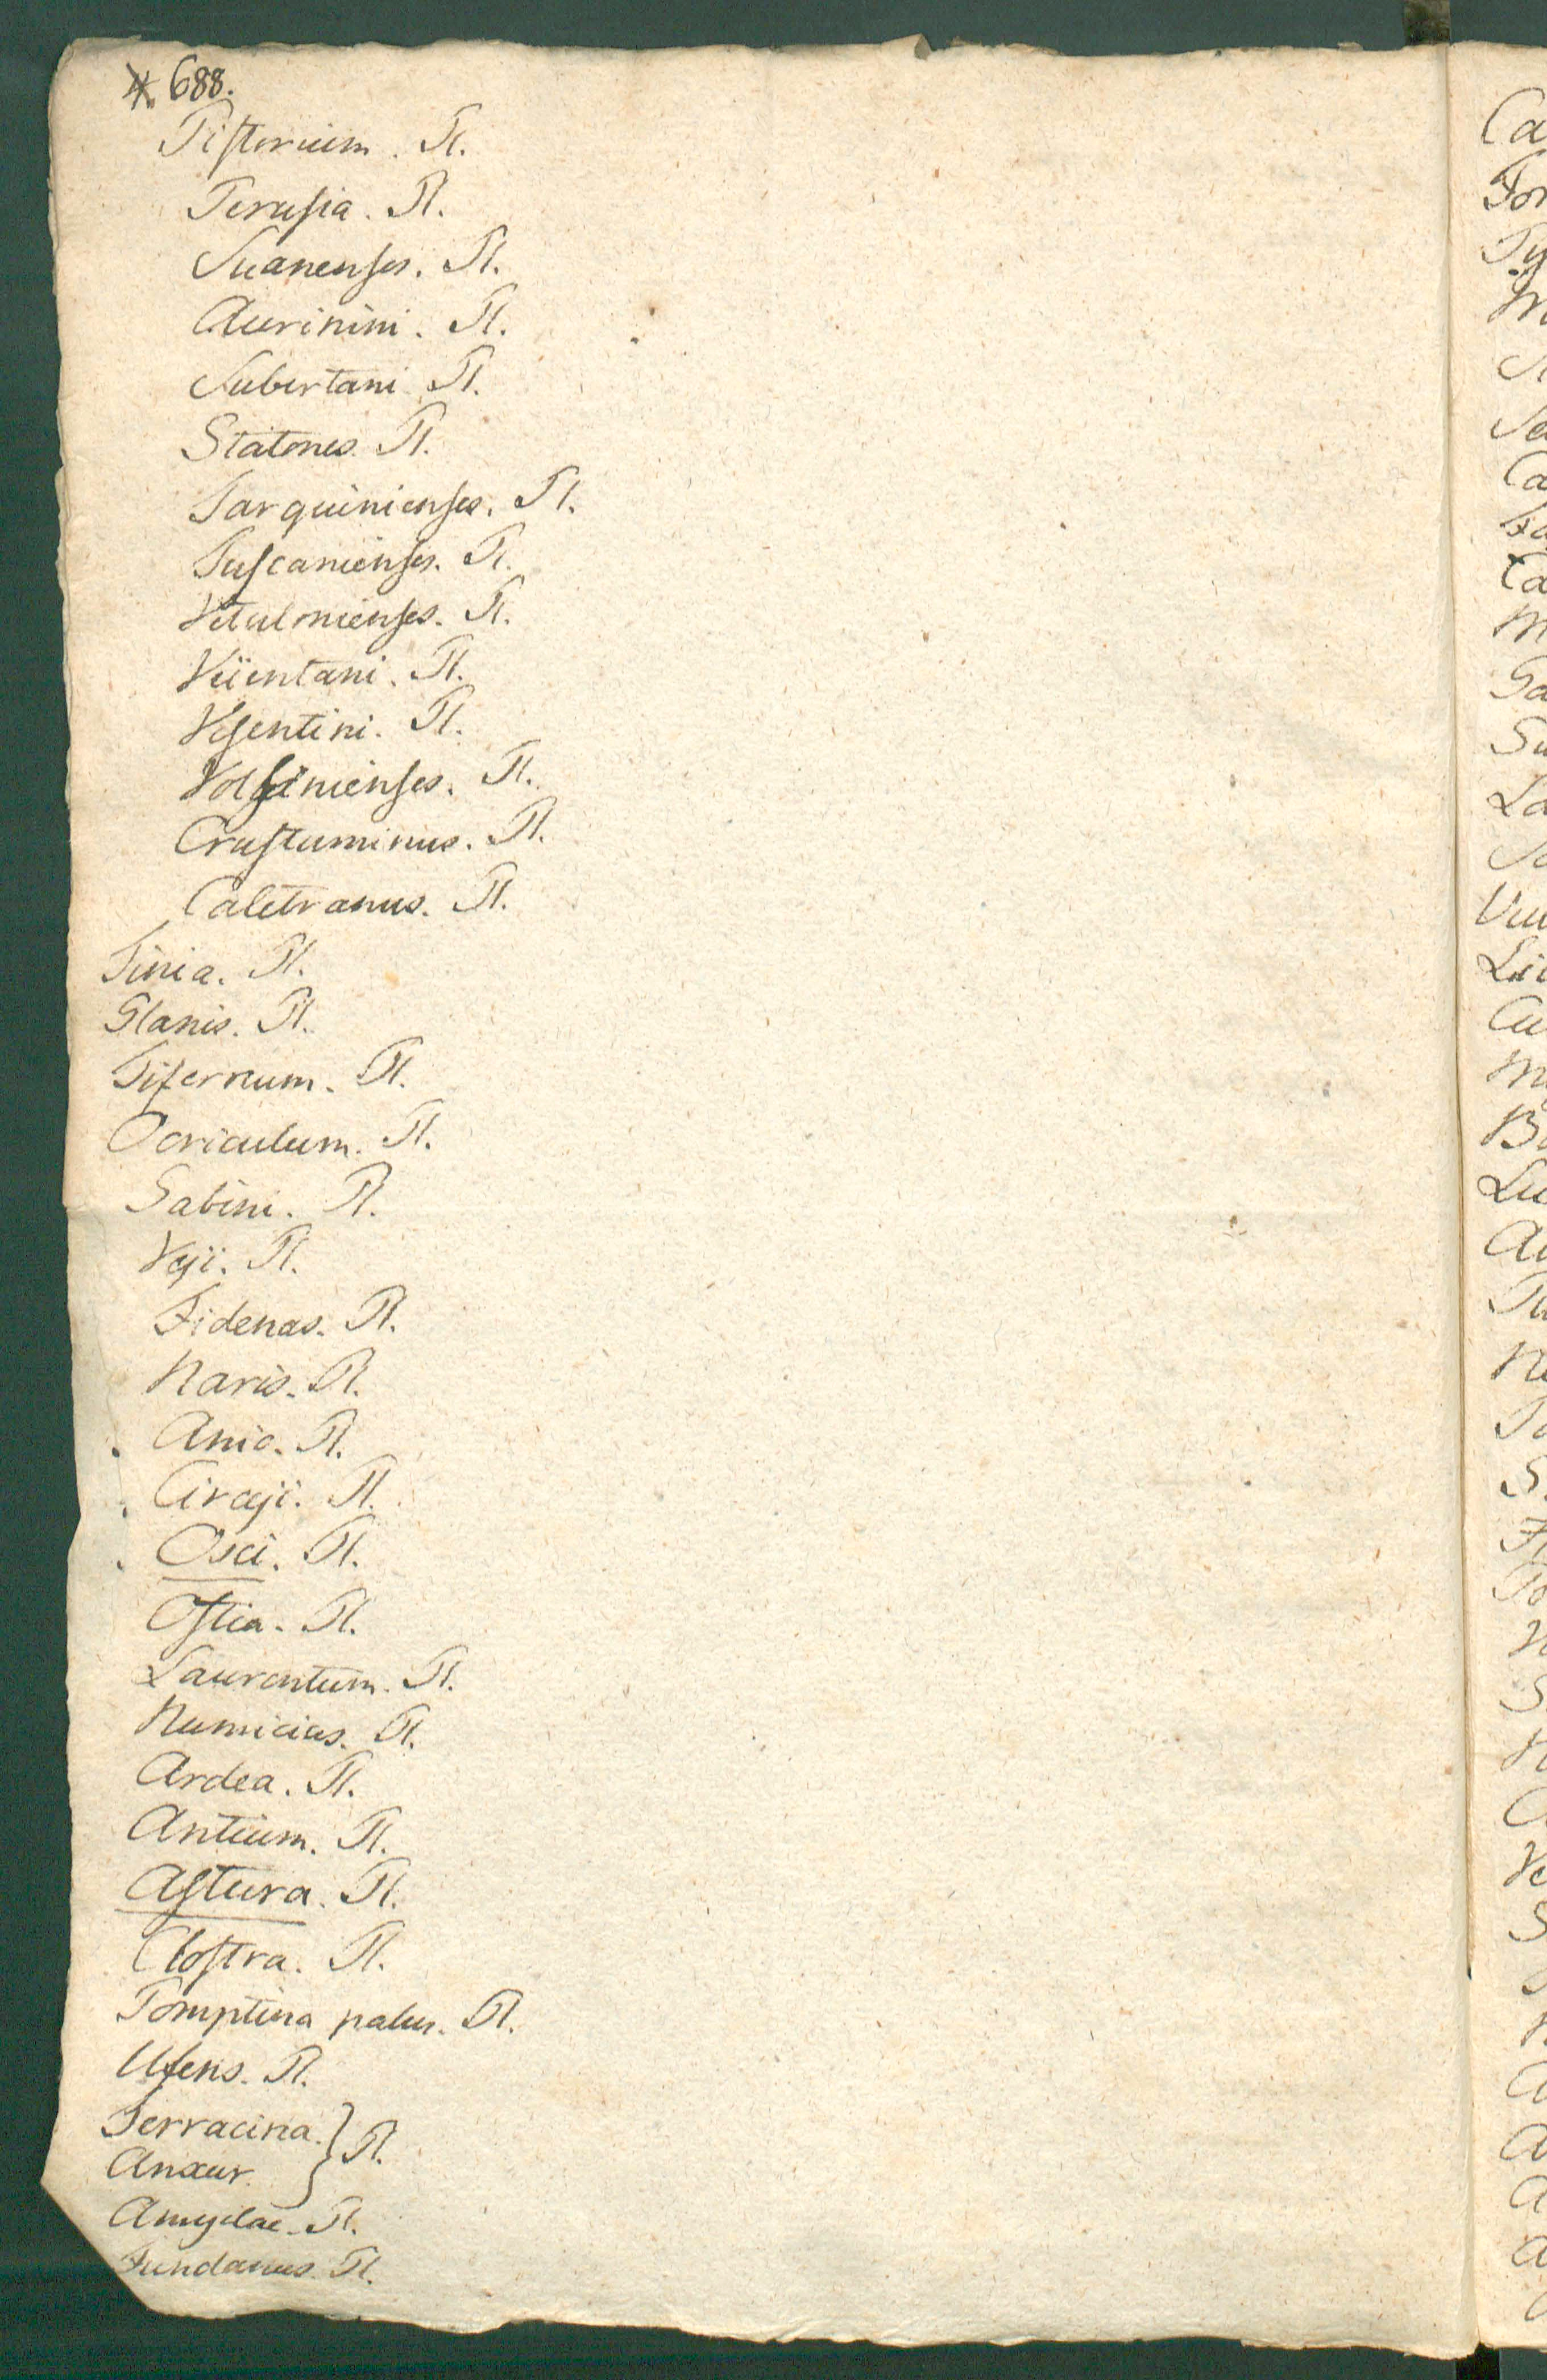 * 688.
Pistorium. Pl.
Perusia. Pl.
Suanenses. Pl.
Aurinini. Pl.
Subertani Pl.
Statones. Pl.
Tarquinienses. Pl.
Tuscanienses. Pl.
Vetulonienses. Pl.
Veientani. Pl.
Vesentini. Pl.
Volsinienses. Pl.
Crustuminus. Pl.
Caletranus. Pl.
Tinia. Pl.
Glanis. Pl.
Tifernum. Pl.
Ocriculum. Pl.
Sabini. Pl.
Veji. Pl.
Fidenas. Pl.
Naris. Pl.
Anio. Pl.
Circeji. Pl.
Osci. Pl.
Ostia. Pl.
Laurentum. Pl.
Numicius. Pl.
Ardea. Pl.
Antium. Pl.
Astura. Pl.
Clostra. Pl.
Pomptina palus. Pl.
Ufens. Pl.
Terracina. } Pl.
Anxur.
Amyclae. Pl.
Fundanus. Pl.